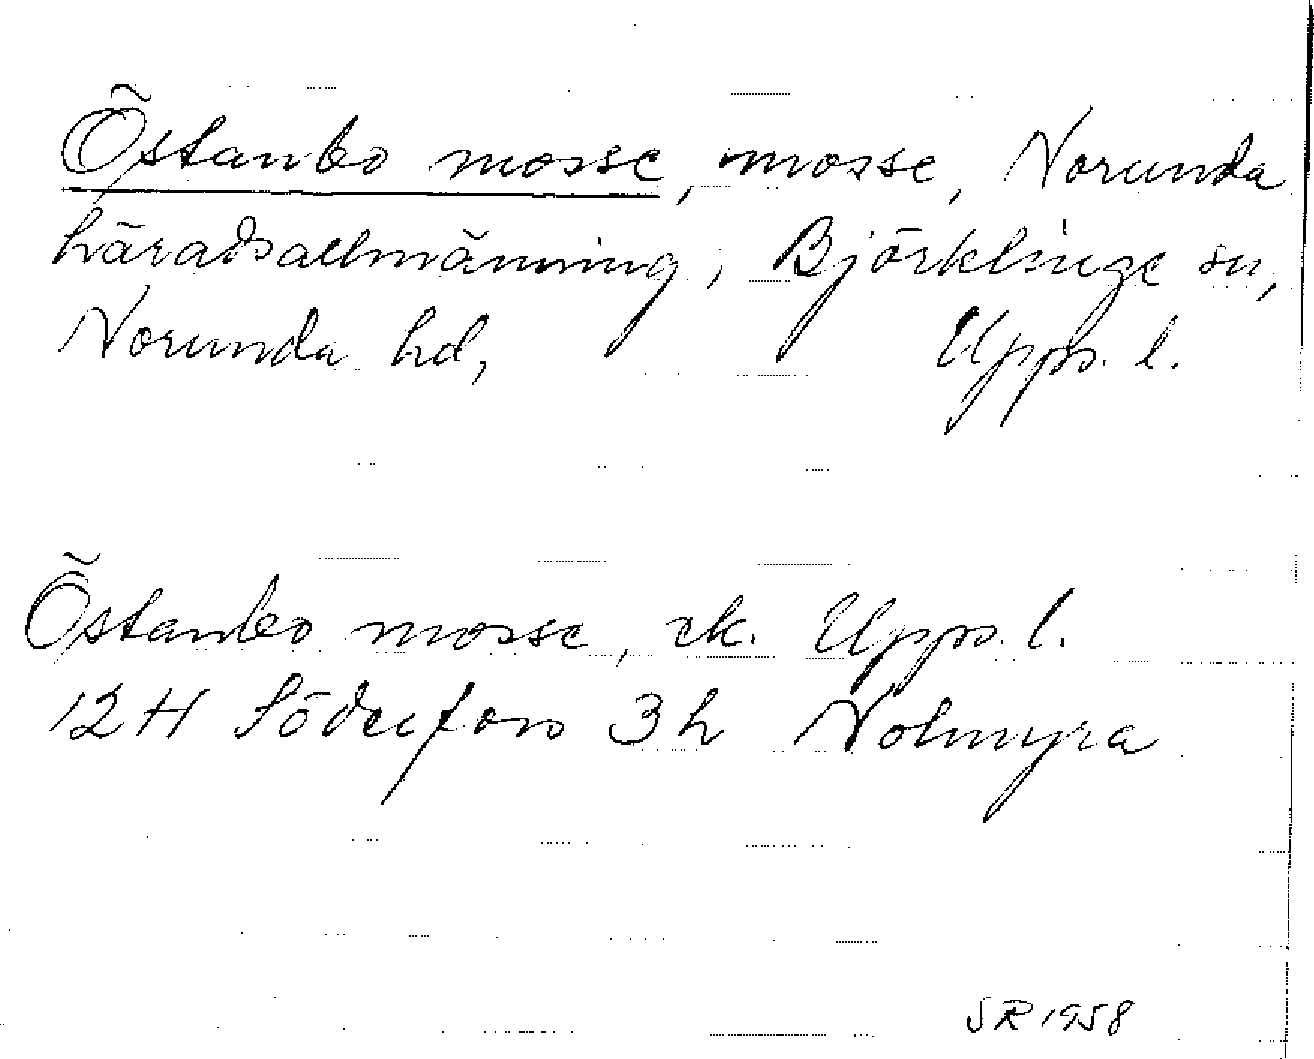 Östanbo mosse, mosse, Norunda
häradsallmänning, Björklinge sn,
Norunda hd, Upps. l.
Östanbo mosse, ek. Upps. l.
12H Söderfors 3h Nolmyra
SR 1958